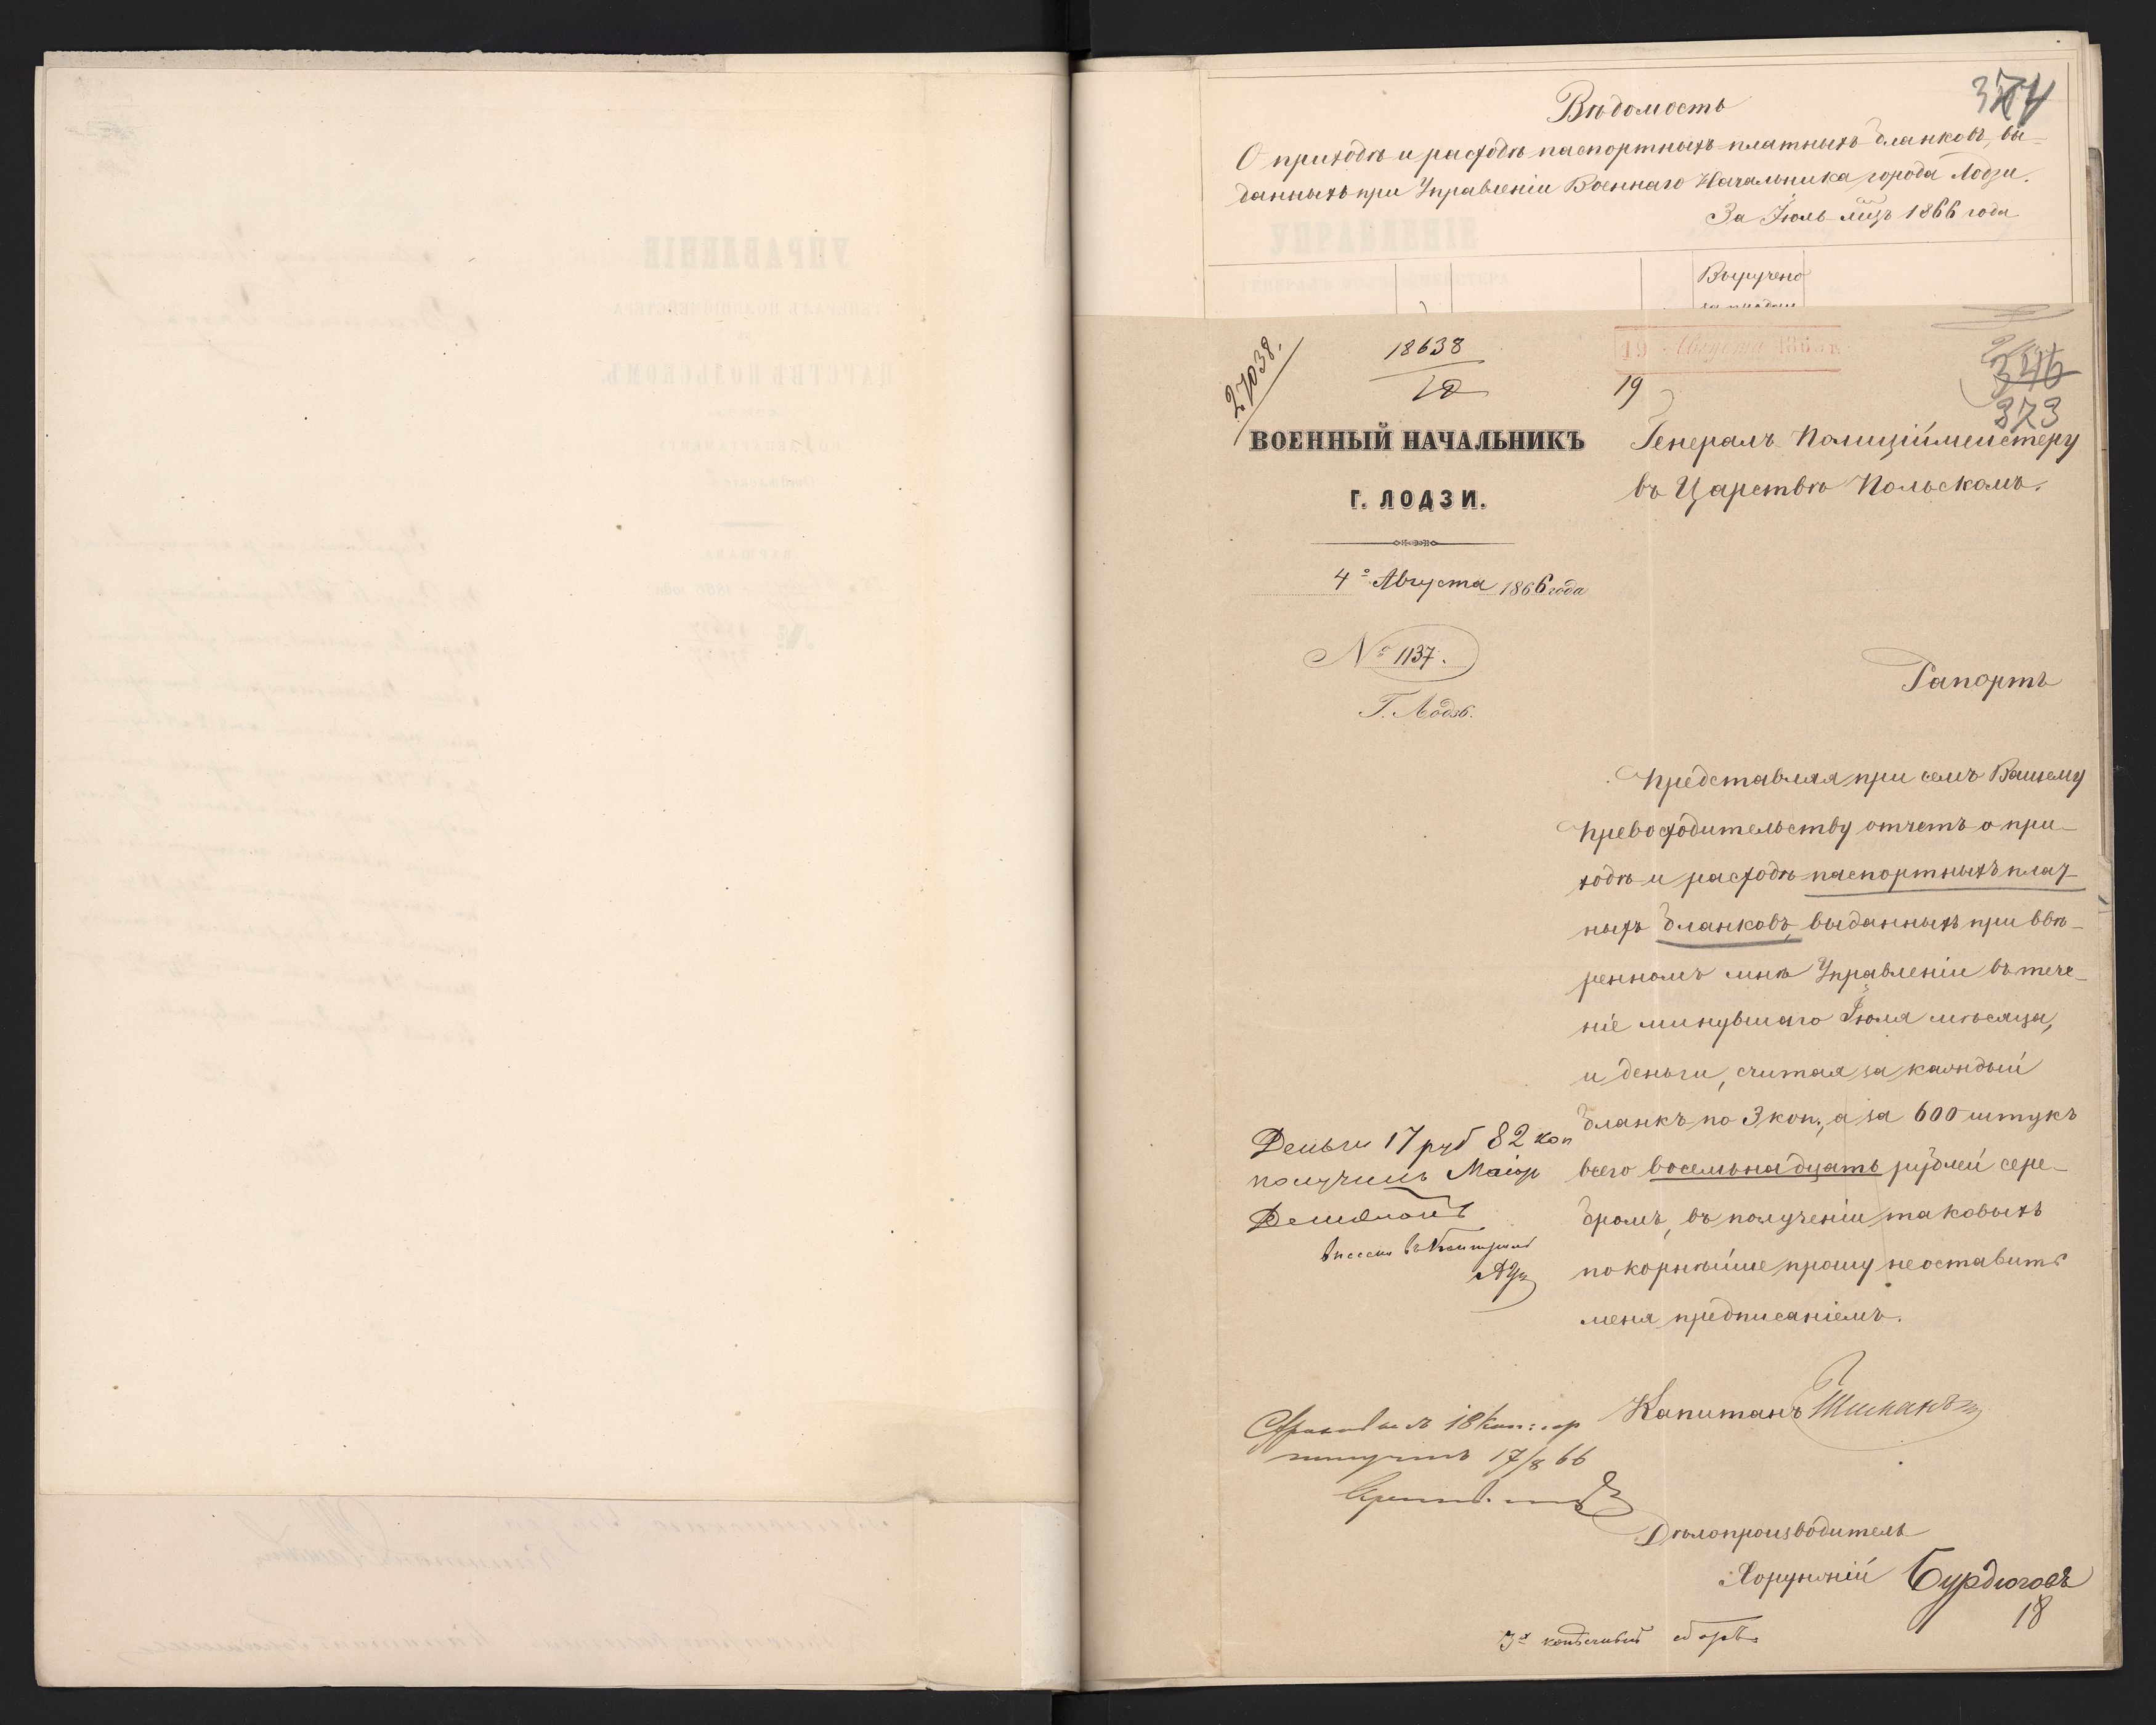 374
Вѣдомость
О приходѣ и расходѣ паспортныхъ платныхъ бланковъ, вы-
данныхъ при Управленіи Военнаго Начальника города Лодзи.
За Іюль мѣсцъ 1866 года
Выручено
за продан
27038.
18638
19 Августа 1866 г.
19
346
373
ВОЕННЫЙ НАЧАЛЬНИКЪ
Г. ЛОДЗИ.
4º Августа 1866 года
№ 1137.
Г. Лодзь.
Генералъ Полиціймейстеру
въ Царствѣ Польскомъ.
Рапортъ
Представляя при семъ Вашему
Превосходительству отчетъ о при-
ходѣ и расходѣ паспортныхъ плат-
ныхъ бланковъ, выданныхъ при ввѣ-
ренномъ мнѣ Управленіи въ тече-
ніе минувшаго Іюля мѣсяца,
и деньги, считая за каждый
бланкъ по 3 коп., а за 600 штукъ
всего восемьнадцать рублей сере-
бромъ, въ полученіи таковыхъ
покорнѣйше прошу не оставить
меня предписаніемъ.
Деньги 17 руб 82 коп
получилъ Маіоръ
внесены въ Контроль
Капитанъ
18 коп: сер
получилъ 17/8 66
Дѣлопроизводитель
Хорунжій Бурдюговъ
18
3х копѣечный сборъ